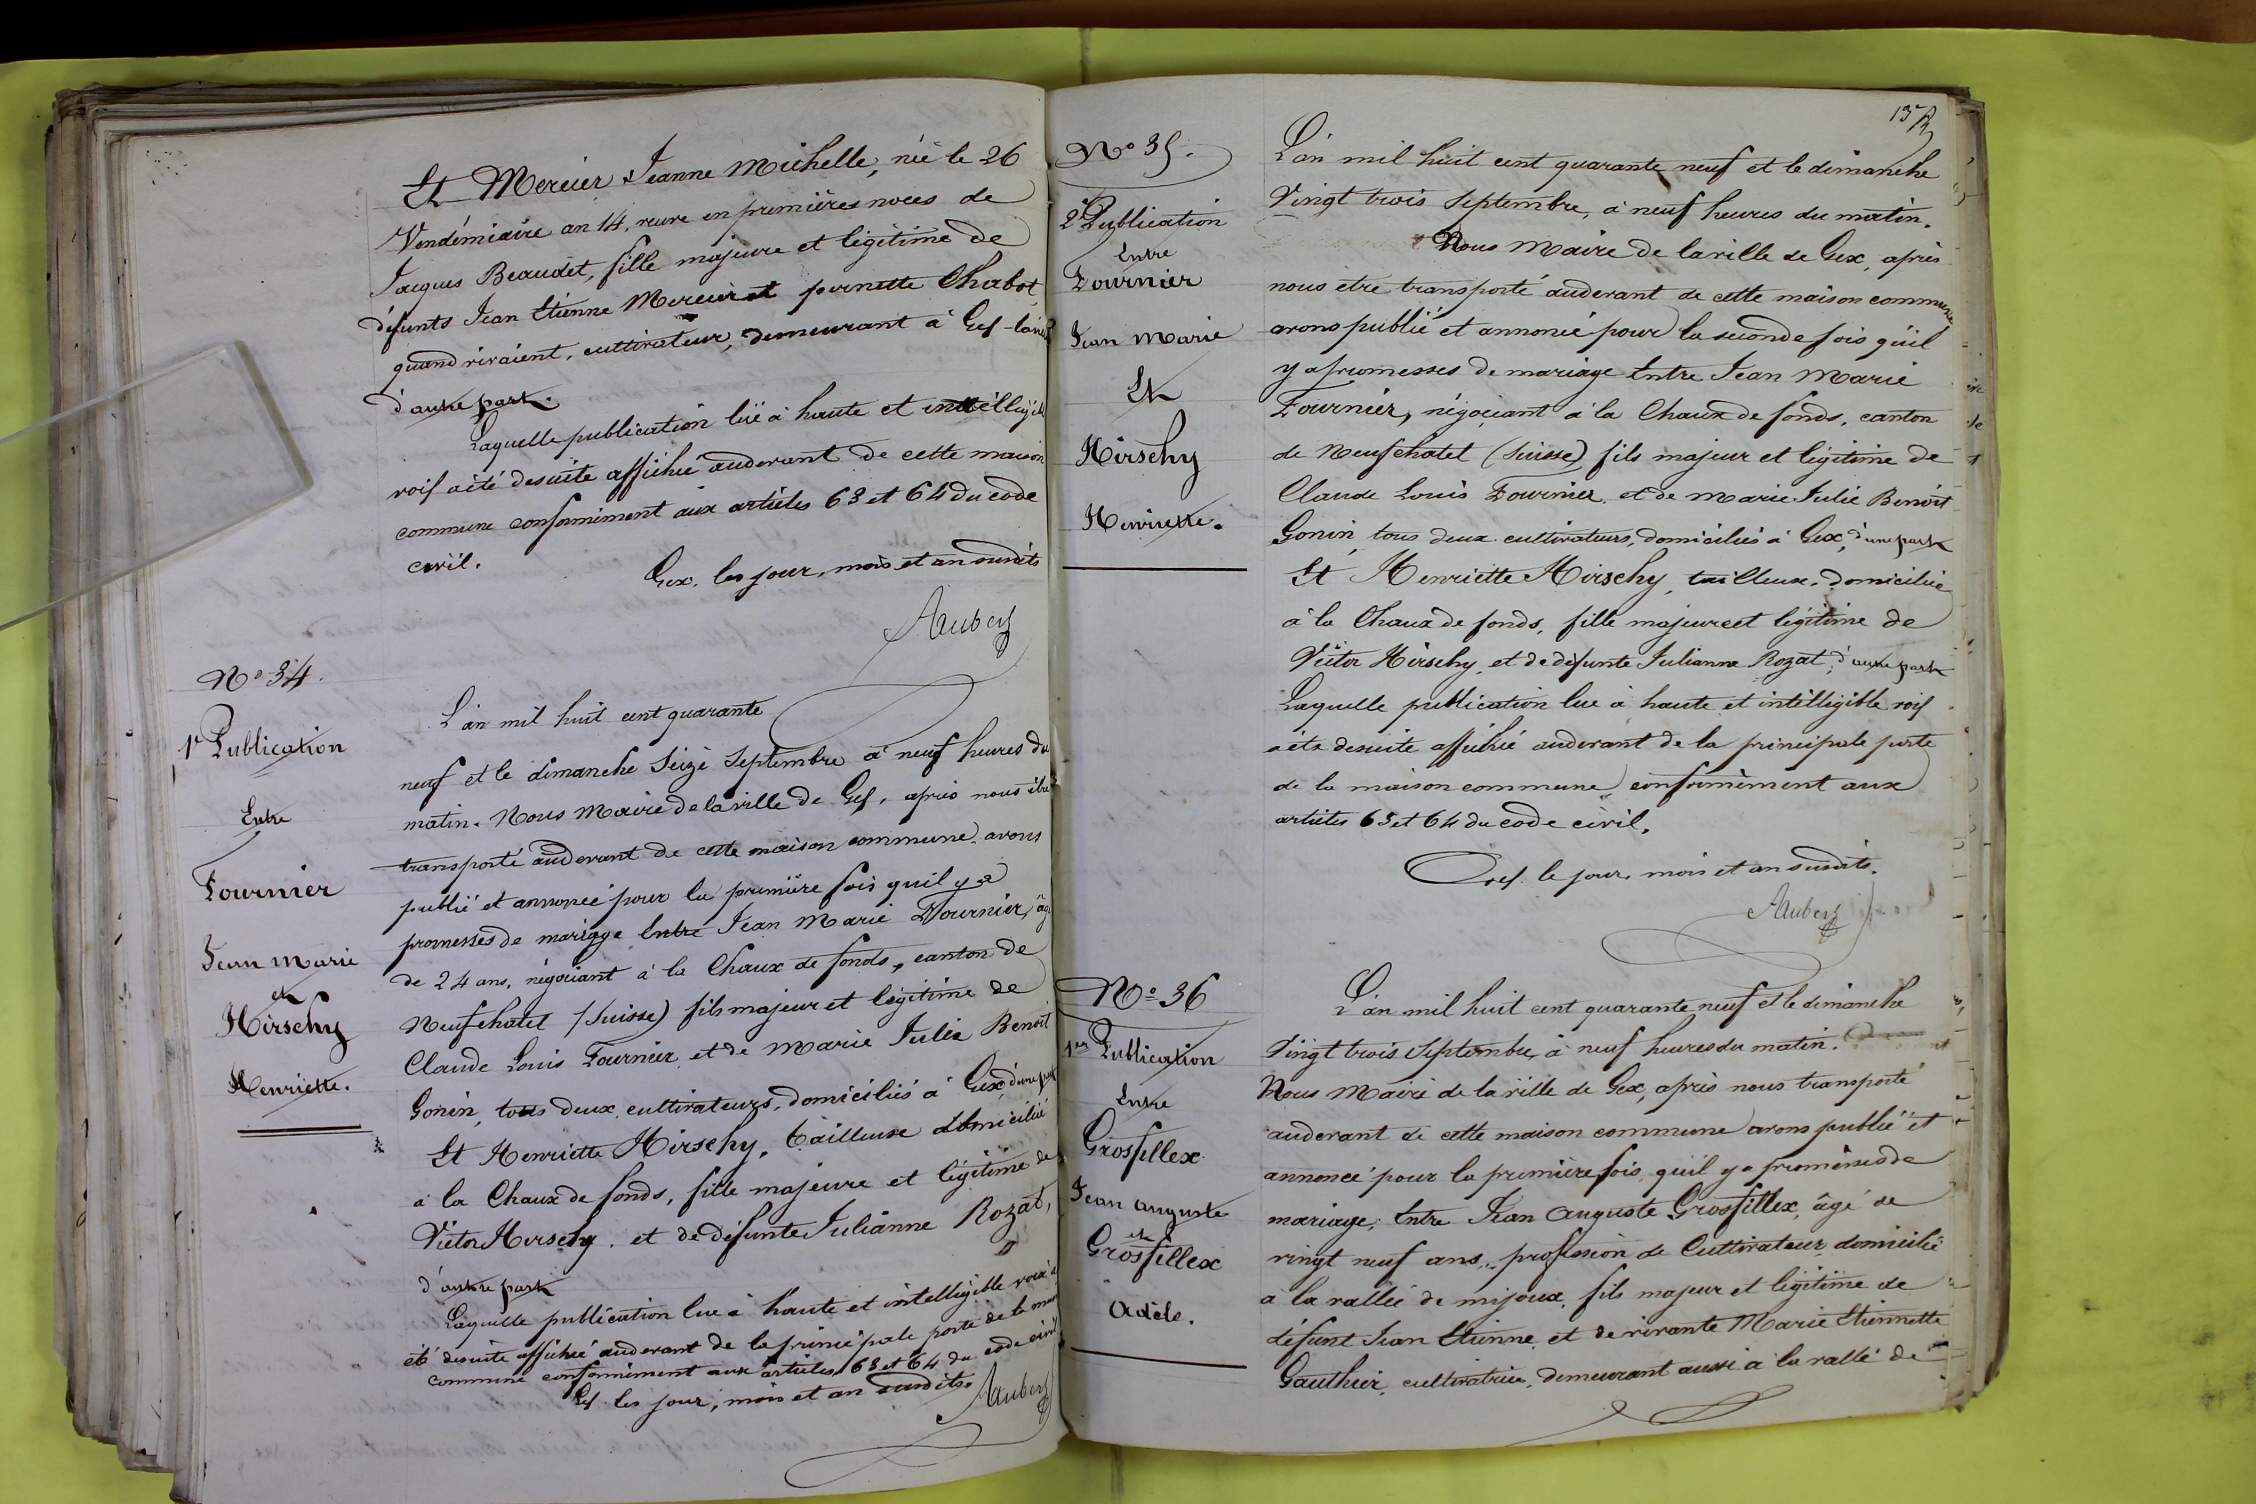 Et Mercier Jeanne Michelle, née le 26
Vendémiaire an 14, veuve en premières noces de
Jacques Beaudet, fille majeure et légitime de
défunts Jean Etienne Mercier et pernette Chabot
quand vivaient, cultivateur, demeurant à Gex-la-ville
d'autre part.
Laquelle publication lue à haute et intelligible
voix a été desuite affichée audevant de cette maison
commune conformément aux articles 63 et 64 du code
civil.
Gex, les jour, mois et an susdits
Aubery
No 34.
1e Publication
Entre
Fournier
Jean Marie
et
Hirschy
Henriette.
L'an mil huit cent quarante
neuf et le dimanche Seize Septembre à neuf heures du
matin. Nous Maire de la ville de Gex, après nous être
transporté audevant de cette maison commune avons
publié et annoncé pour la première fois qu'il y a
promesses de mariage Entre Jean Marie Fournier, âgé
de 24 ans, négociant à la Chaux de fonds, canton de
Neufchatel (Suisse) fils majeur et légitime de
Claude Louis Fournier et de Marie Julie Benoit
Gonin, tous deux cultivateurs, domiciliés à Gex, d'une part
Et Henriette Hirschy, tailleuse domiciliée
à la Chaux de fonds, fille majeure et légitime de
Victor Hirschy et de défunte Julianne Rozat,
d'autre part
Laquelle publication lue à haute et intelligible voix a
été desuite affichée audevant de la principale porte de la maison
commune conformément aux articles 63 et 64 du code civil
Gex les jour, mois et an susdits.
Aubery
13
No 35.
2e Publication
Entre
Fournier
Jean Marie
Et
Hirschy
Henriette.
L'an mil huit cent quarante neuf et le dimanche
Vingt trois Septembre, à neuf heures du matin.
Nous Maire de la ville de Gex, après
nous etre transporté audevant de cette maison commune
avons publié et annoncé pour la seconde fois qu'il
y a promesses de mariage Entre Jean Marie
Fournier, négociant à la Chaux de fonds, canton
de Neufchatel (Suisse) fils majeur et légitime de
Claude Louis Fournier et de Marie Julie Benoit
Gonin, tous deux cultivateurs, domiciliés à Gex, d'une part
Et Henriette Hirschy, tailleuse, domiciliée
à la Chaux de fonds, fille majeure et légitime de
Victor Hirschy et de défunte Julianne Rozat, d'autre part
Laquelle publication lue à haute et intelligible voix
a été desuite affichée audevant de la principale porte
de la maison commune conformément aux
articles 63 et 64 du code civil.
Gex. le jour, mois et an susdits.
Aubery
No 36
1er Publication
Entre
Grosfillex
Jean Auguste
et
Grosfillex
Adèle.
L'an mil huit cent quarante neuf et le dimanche
Vingt trois Septembre à neuf heures du matin.
Nous Maire de la ville de Gex, après nous transporté
audevant de cette maison commune avons publié et
annoncé pour la première fois, qu'il y a promesses de
mariage, Entre Jean Auguste Grosfillex, âgé de
vingt neuf ans, profession de Cultivateur domicilié
à la vallée de mijoux, fils majeur et légitime de
défunt Jean Etienne et de vivante Marie Etiennette
Gauthier, cultivatrice, demeurant aussi à la vallé de